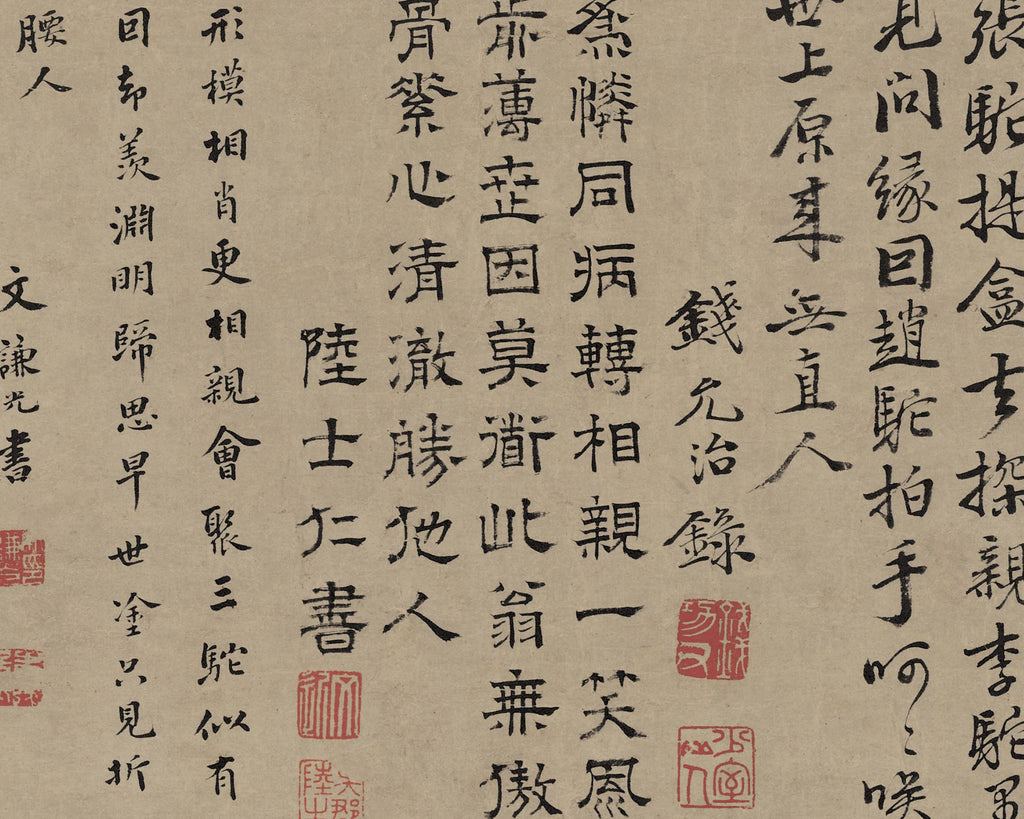 張駝提盒去探親李駝
見問緣囙趙駝拍手呵〻咲
世上原来無直人
錢允治錄
為憐同病轉相親一笑風
前薄世因莫衟此翁無傲
骨素心清澈勝他人
陸士仁書
形模相肖更相親會聚三駝似有
囙却羨淵明歸思早世塗只見折
腰人
文謙光書